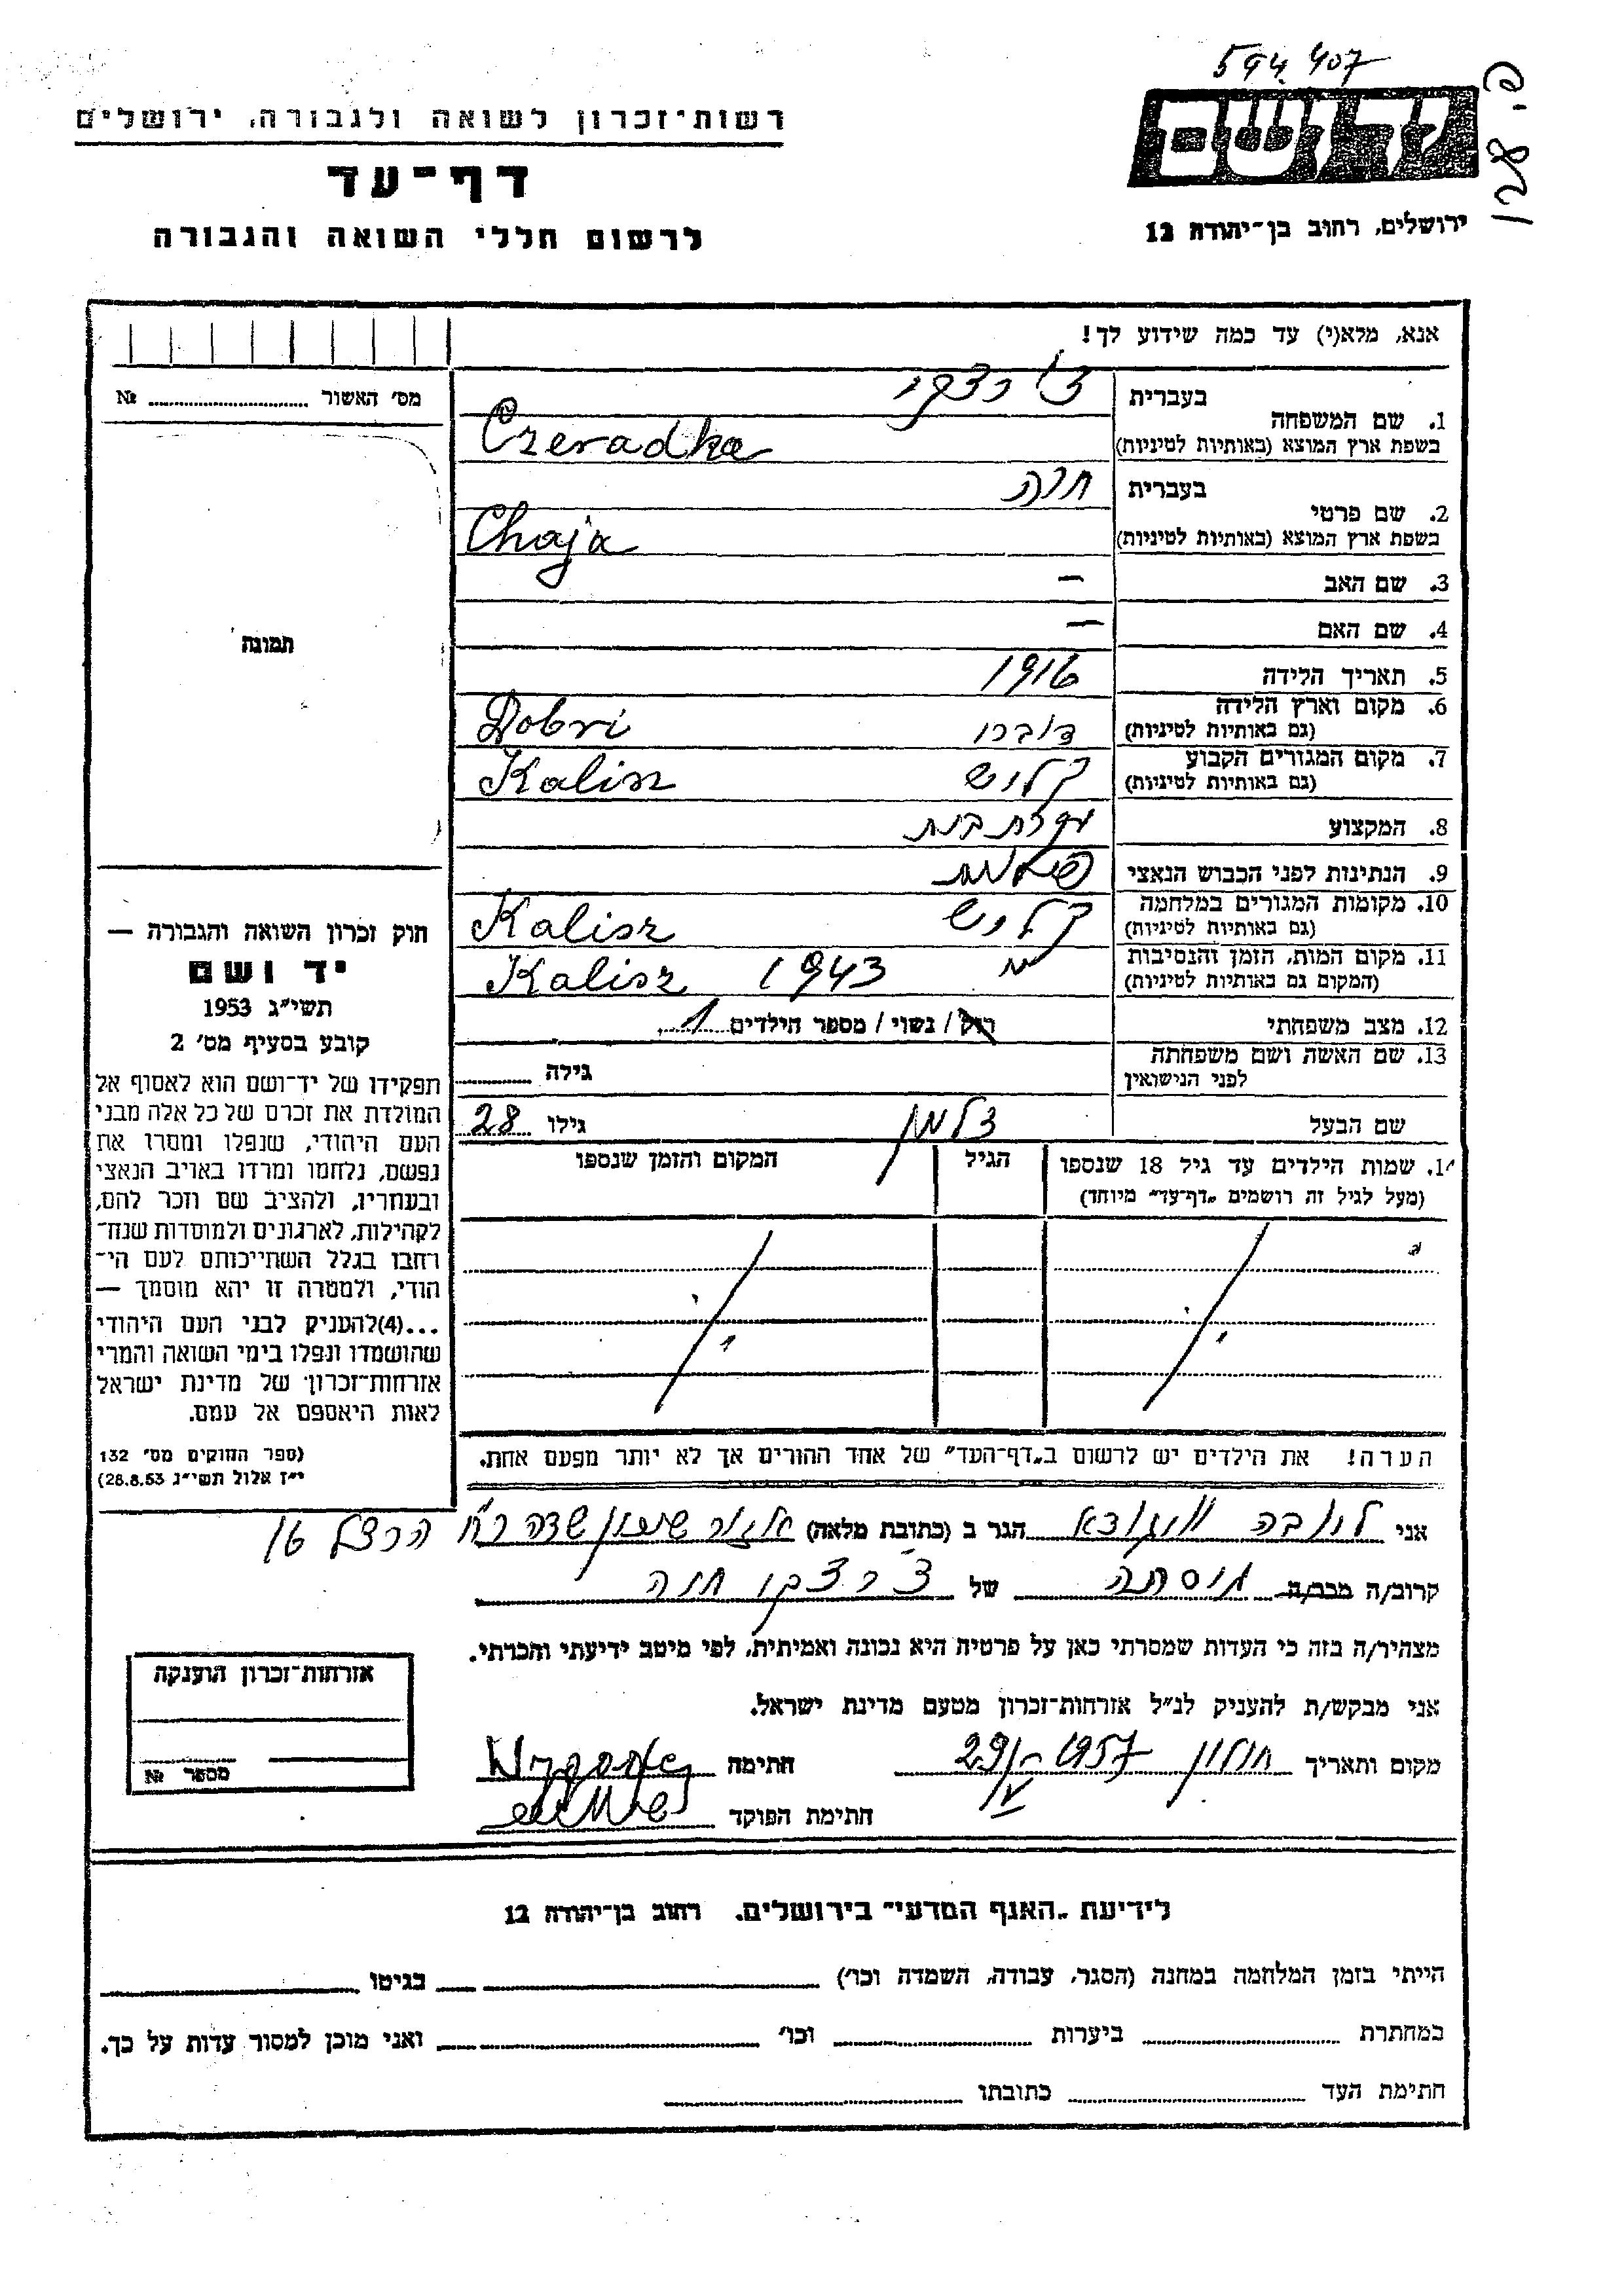 594 407
פ. 128
יד ושם
ירושלים, רחוב בן-יהודה 12
רשות-זכרון לשואה ולגבורה, ירושלים
דף-עד
לרשום חללי השואה והגבורה
אנא, מלא(י) עד כמה שידוע לך!
מס' האשור № ........
1. שם המשפחה
בעברית
בשפת ארץ המוצא (באותיות לטיניות) Czeradka
2. שם פרטי
בעברית חיה
בשפת ארץ המוצא (באותיות לטיניות) Chaja
3. שם האב —
4. שם האם —
5. תאריך הלידה 1916
6. מקום וארץ הלידה (גם באותיות לטיניות) דוברי Dobri
7. מקום המגורים הקבוע (גם באותיות לטיניות) קליש Kalisz
8. המקצוע עקרת בית
9. הנתינות לפני הכבוש הנאצי
10. מקומות המגורים במלחמה (גם באותיות לטיניות) קליש Kalisz
11. מקום המות, הזמן והנסיבות (המקום גם באותיות לטיניות) 1943 Kalisz
12. מצב משפחתי רווק / נשוי / מספר הילדים 1
13. שם האשה ושם משפחתה לפני הנישואין גילה ........
שם הבעל זלמן גילו 28
14. שמות הילדים עד גיל 18 שנספו (מעל לגיל זה רושמים „דף-עד" מיוחד)
הגיל
המקום והזמן שנספו
הערה! את הילדים יש לרשום ב„דף-העד" של אחד ההורים אך לא יותר מפעם אחת.
תמונה
חוק זכרון השואה והגבורה —
יד ושם
תשי"ג 1953
קובע בסעיף מס' 2
תפקידו של יד-ושם הוא לאסוף אל
המולדת את זכרם של כל אלה מבני
העם היהודי, שנפלו ומסרו את
נפשם, נלחמו ומרדו באויב הנאצי
ובעוזריו, ולהציב שם וזכר להם,
לקהילות, לארגונים ולמוסדות שנח-
רחבו בגלל השתייכותם לעם הי-
הודי, ולמטרה זו יהא מוסמך —
...(4)להעניק לבני העם היהודי
שהושמדו ונפלו בימי השואה והמרי
אזרחות-זכרון של מדינת ישראל
לאות היאספם אל עמם.
(ספר החוקים מס' 132
י"ז אלול תשי"ג 28.8.53)
אני ליובה הגר ב (כתובת מלאה) שדה רח' הרצל 16
קרוב/ה מכר/ה גיסתה של חיה
מצהיר/ה בזה כי העדות שמסרתי כאן על פרטיה היא נכונה ואמיתית, לפי מיטב ידיעתי והכרתי.
אני מבקש/ת להעניק לנ"ל אזרחות-זכרון מטעם מדינת ישראל.
מקום ותאריך חולון 29/IV-1957 חתימה
חתימת הפוקד
אזרחות-זכרון הוענקה
מספר №
לידיעת „האגף המדעי" בירושלים, רחוב בן-יהודה 12
הייתי בזמן המלחמה במחנה (הסגר, עבודה, השמדה וכו') ........ בגיטו ........
במחתרת ........ ביערות ........ וכו' ........ ואני מוכן למסור עדות על כך.
חתימת העד ........ כתובתו ........